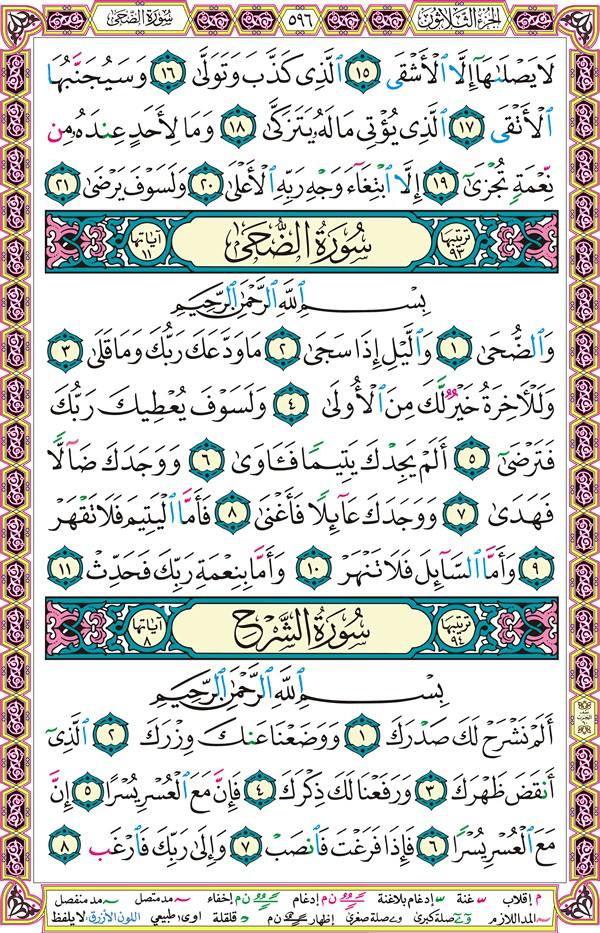 الجزء الثلاثون
٥٩٦
سورة الضحى
لَا يَصْلَىٰهَآ إِلَّا ٱلْأَشْقَى ١٥ ٱلَّذِى كَذَّبَ وَتَوَلَّىٰ ١٦ وَسَيُجَنَّبُهَا
ٱلْأَتْقَى ١٧ ٱلَّذِى يُؤْتِى مَالَهُۥ يَتَزَكَّىٰ ١٨ وَمَا لِأَحَدٍ عِندَهُۥ مِن
نِّعْمَةٍ تُجْزَىٰٓ ١٩ إِلَّا ٱبْتِغَآءَ وَجْهِ رَبِّهِ ٱلْأَعْلَىٰ ٢٠ وَلَسَوْفَ يَرْضَىٰ ٢١
ترتيبها ٩٣ سُورَةُ الضُّحَىٰ آياتها ١١
بِسْمِ ٱللَّهِ ٱلرَّحْمَٰنِ ٱلرَّحِيمِ
وَٱلضُّحَىٰ ١ وَٱلَّيْلِ إِذَا سَجَىٰ ٢ مَا وَدَّعَكَ رَبُّكَ وَمَا قَلَىٰ ٣
وَلَلْأَخِرَةُ خَيْرٌ لَّكَ مِنَ ٱلْأُولَىٰ ٤ وَلَسَوْفَ يُعْطِيكَ رَبُّكَ
فَتَرْضَىٰٓ ٥ أَلَمْ يَجِدْكَ يَتِيمًا فَـَٔاوَىٰ ٦ وَوَجَدَكَ ضَآلًّا
فَهَدَىٰ ٧ وَوَجَدَكَ عَآئِلًا فَأَغْنَىٰ ٨ فَأَمَّا ٱلْيَتِيمَ فَلَا تَقْهَرْ
٩ وَأَمَّا ٱلسَّآئِلَ فَلَا تَنْهَرْ ١٠ وَأَمَّا بِنِعْمَةِ رَبِّكَ فَحَدِّثْ ١١
ترتيبها ٩٤ سُورَةُ الشَّرْحِ آياتها ٨
بِسْمِ ٱللَّهِ ٱلرَّحْمَٰنِ ٱلرَّحِيمِ
أَلَمْ نَشْرَحْ لَكَ صَدْرَكَ ١ وَوَضَعْنَا عَنكَ وِزْرَكَ ٢ ٱلَّذِىٓ
أَنقَضَ ظَهْرَكَ ٣ وَرَفَعْنَا لَكَ ذِكْرَكَ ٤ فَإِنَّ مَعَ ٱلْعُسْرِ يُسْرًا ٥ إِنَّ
مَعَ ٱلْعُسْرِ يُسْرًا ٦ فَإِذَا فَرَغْتَ فَٱنصَبْ ٧ وَإِلَىٰ رَبِّكَ فَٱرْغَب ٨
م إقلاب غنة إدغام بلاغنة ن م إدغام ن م إخفاء مد متصل مد منفصل
المد اللازم صلة كبرى صلة صغرى إظهار ن م قلقلة اوى: طبيعي اللون الأزرق: لا يلفظ